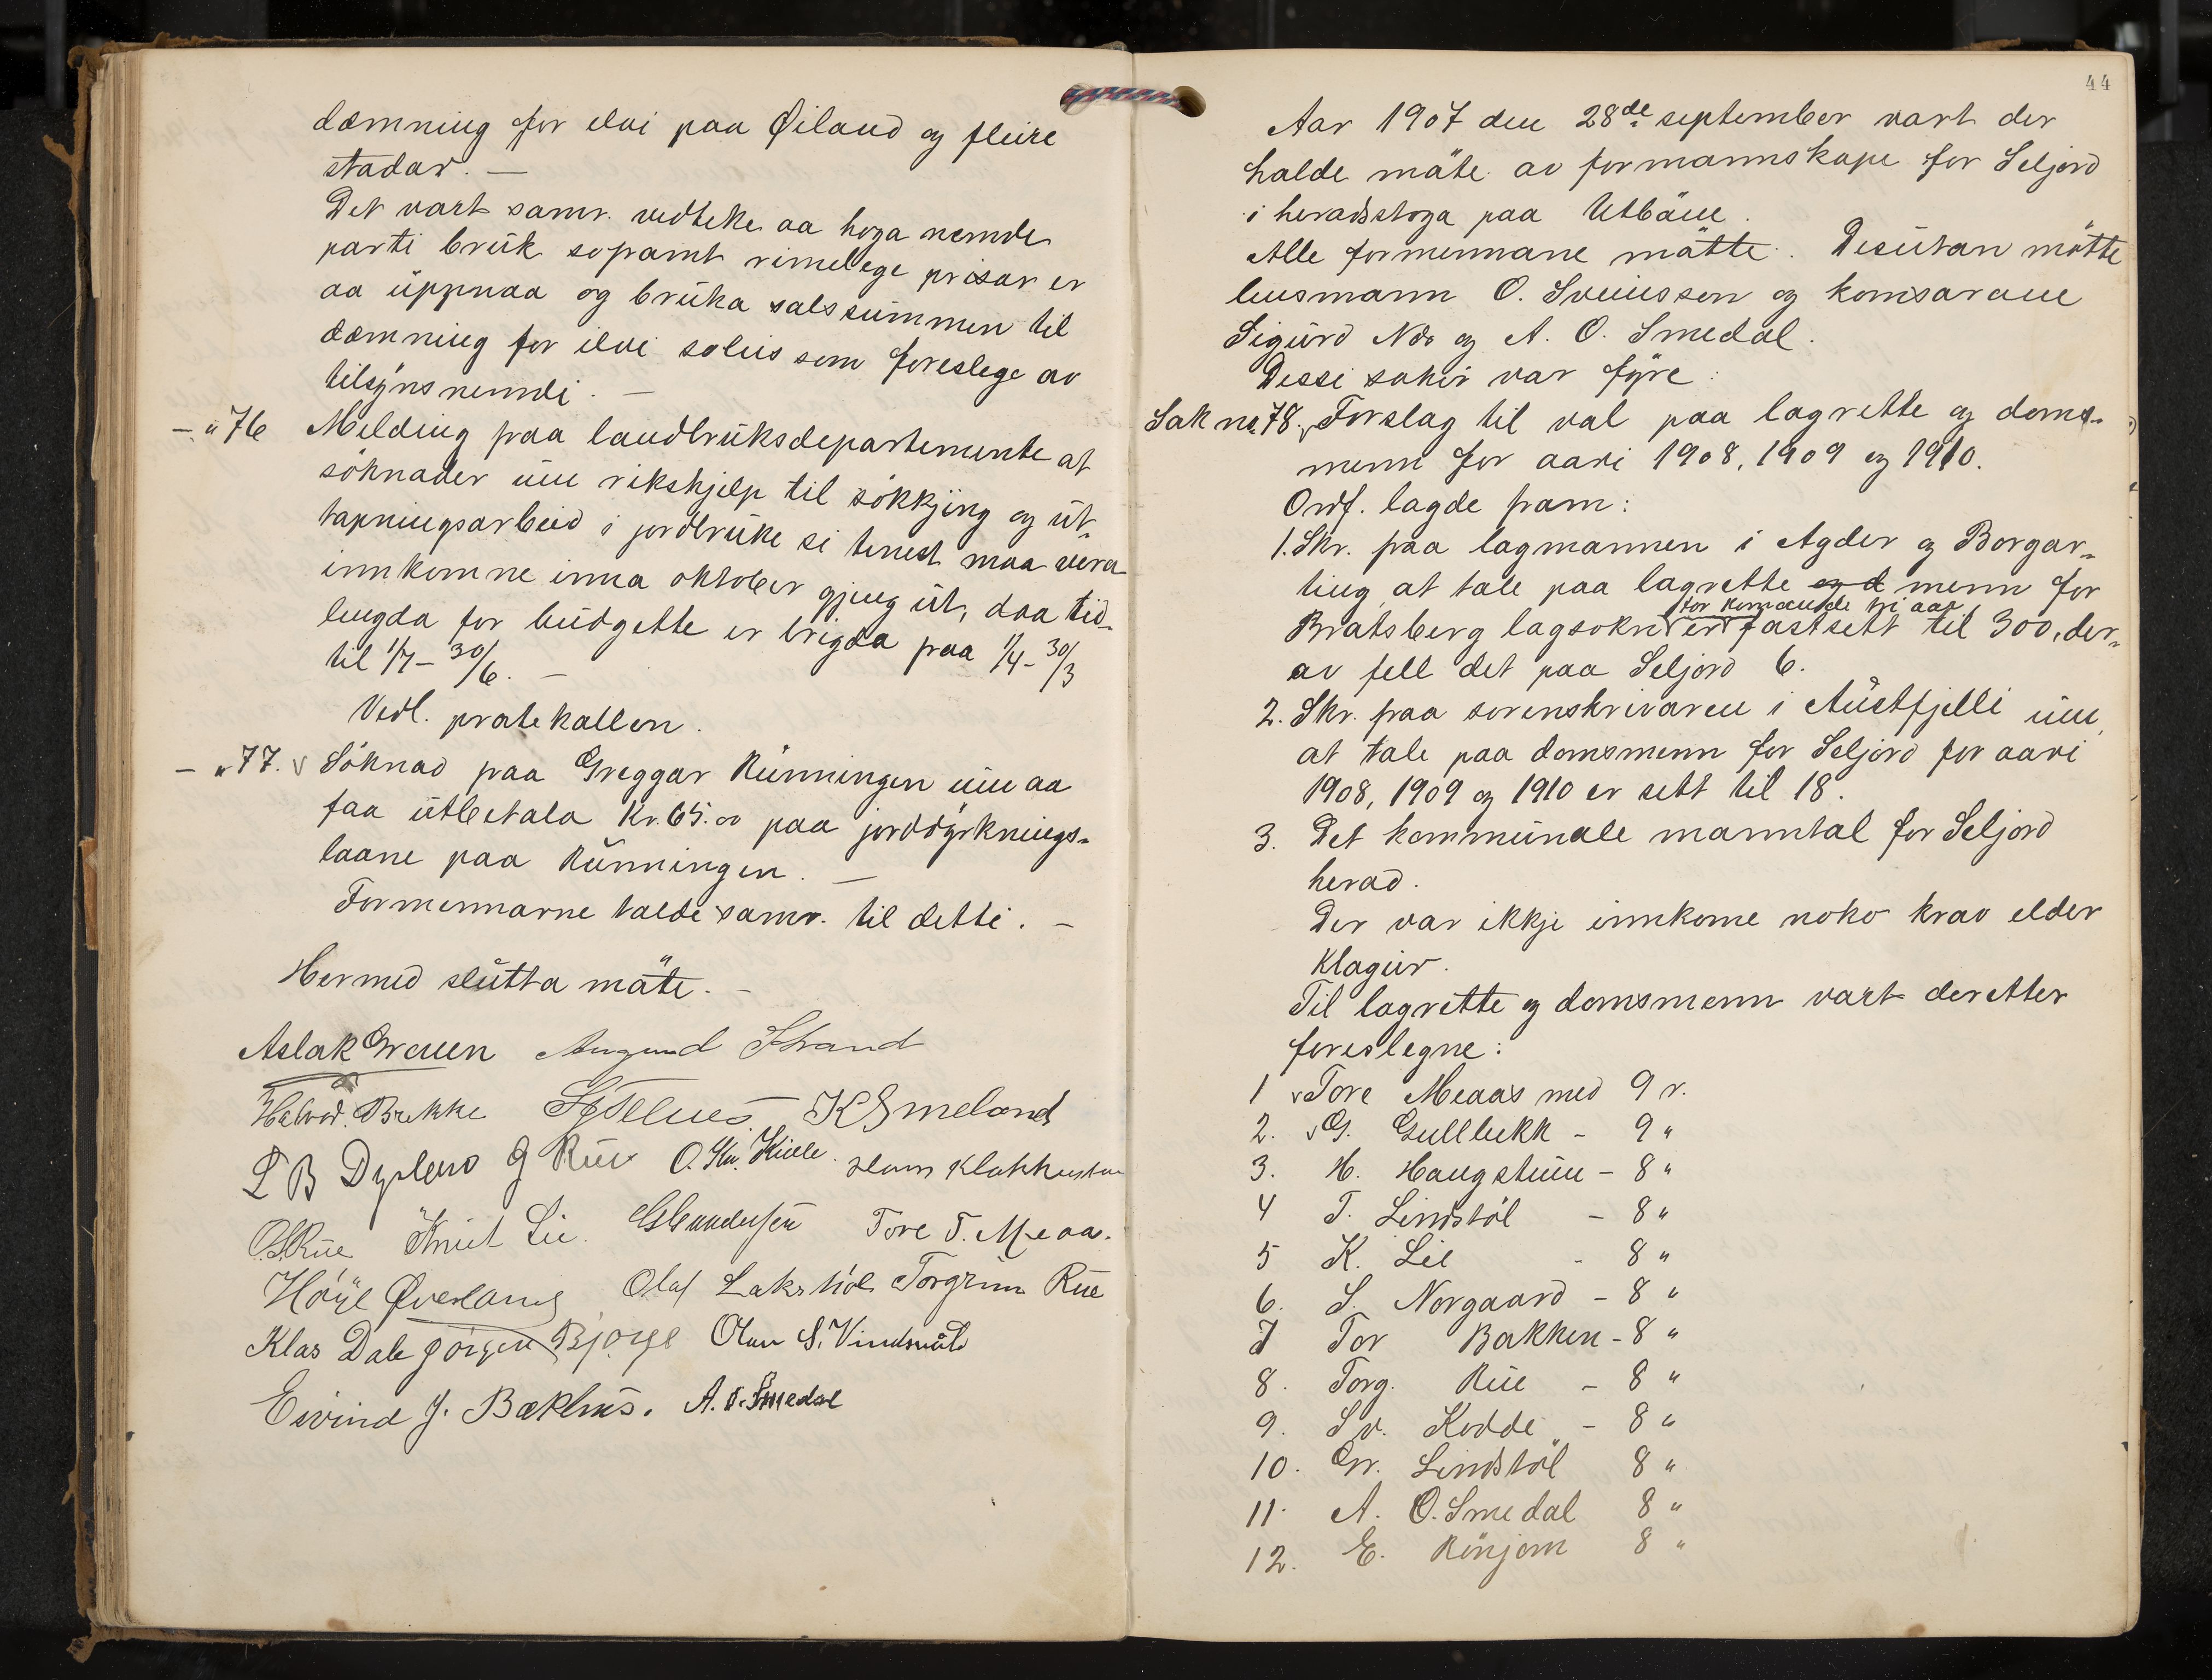 dæmning for elvi paa Øiland og fleire
stadar. —
Det vart samr. vedteke aa hoga nemde
parti bruk sopramt rimelege prisar er
aa uppnaa og bruka salssummen til
dæmning for elvi soleis som foreslege av
tilsynsnemndi. —
— " 76 Melding fraa landbruksdepartemente at
söknader um rikshjelp til sökkjing og ut-
tapningsarbeid i jordbruke si tenest maa vera
innkomne innan oktober gjeng ut, daa tid-
lengda for budgette er brigda fraa 1/4 - 30/3
til 1/7 - 30/6. —
Vedl. protokollen.
— " 77. v Söknad fraa Greggar Rünningen um aa
faa utbetala Kr. 65.00 paa jorddyrknings-
laane paa Rünningen. —
Formennarne talde samr. til detti. —
Hermed slutta mäte. —
Aslak Grauen Augund Strand
Halvod. Brekke K Smeland
L B Dyrland G Rue O. Kn. Kivle
O. S. Rue Knut Lie. G Gundersen Tore T. Meaas.
Höije Överland Olaf Lakshöl Torgrim Rue
Klas Dale Jörgen Bjorge Olav S. Vindsvål
Eivind J. Bækhus. A. O. Smedal
44
Aar 1907 den 28de september vart der
halde mäte av formannskape for Seljord
i heradsstoga paa Utbäen.
Alle formennane mätte. Desutan mötte
lensmann O. Sveinsson og komisarane
Sigurd Nes og A. O. Smedal.
Dessi sakir var fyre:
Sak no. 78. v Forslag til val paa lagrette og doms-
menn for aari 1908, 1909 og 1910.
Ordf. lagde fram:
1. Skr. fraa lagmannen i Agder og Borgar-
ting, at tale paa lagrette og d menn for
for komande tri aar
Bratsberg lagsokn er fastsett til 300, der-
av fell det paa Seljord 6.
2. Skr. fraa sorenskrivaren i Austfjelli um,
at tale paa domsmenn for Seljord for aari
1908, 1909 og 1910 er sett til 18.
3. Det kommunale manntal for Seljord
herad.
Der var ikkje innkome noko krav elder
klagur.
Til lagrette og domsmenn vart deretter
foreslegne:
1 v Tore Meaas med 9 r.
2. v G. Gullbekk - 9 "
3. H. Haugstuen - 8 "
4 T. Lindstöl - 8 "
5 K. Lie - 8 "
6. S. Norgaard - 8 "
7 Tor Bakken - 8 "
8. Torg. Rue - 8 "
9. Sv. Kodde - 8 "
10. Gr. Lindstöl 8 "
11. A. O. Smedal 8 "
12. E. Rönjom 8 "